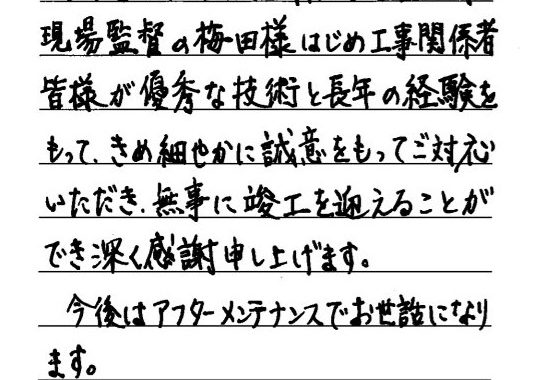 現場監督の梅田様はじめ工事関係者
皆様が優秀な技術と長年の経験を
もって、きめ細やかに誠意をもってご対応
いただき、無事に竣工を迎えることが
でき深く感謝申し上げます。
今後はアフターメンテナンスでお世話になり
ます。